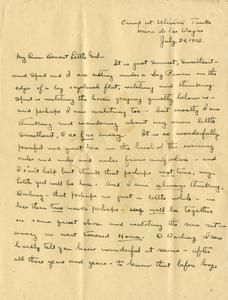 Camp at Ulivarri Tanks
Mesa de las Vegas
July, 28, 1912.
My Own Dearest Little Girl -
It is just sunset, Sweetheart -
and Spud and I are sitting under a big Pinon on the
edge of a big sagebrush flat, watching and thinking.
Spud is watching the horses grazing greatly below us - and
perhaps I am watching too - but mostly I am
thinking and wondering about my own little
Sweetheart, O so far away. It is so wonderfully
peaceful and quiet here in the hush of the evening
miles and miles and miles from anywhere - and
I can't help but think that perhaps next time, my
little girl will be here. And I am always thinking,
Darling - that perhaps in just a little while - in
less than two weeks perhaps - we will be together
in some quiet place and watching the sun set
away in west toward Home. O Darling I can
hardly tell you how wonderful it seems - after
all these years and years - to know that before long